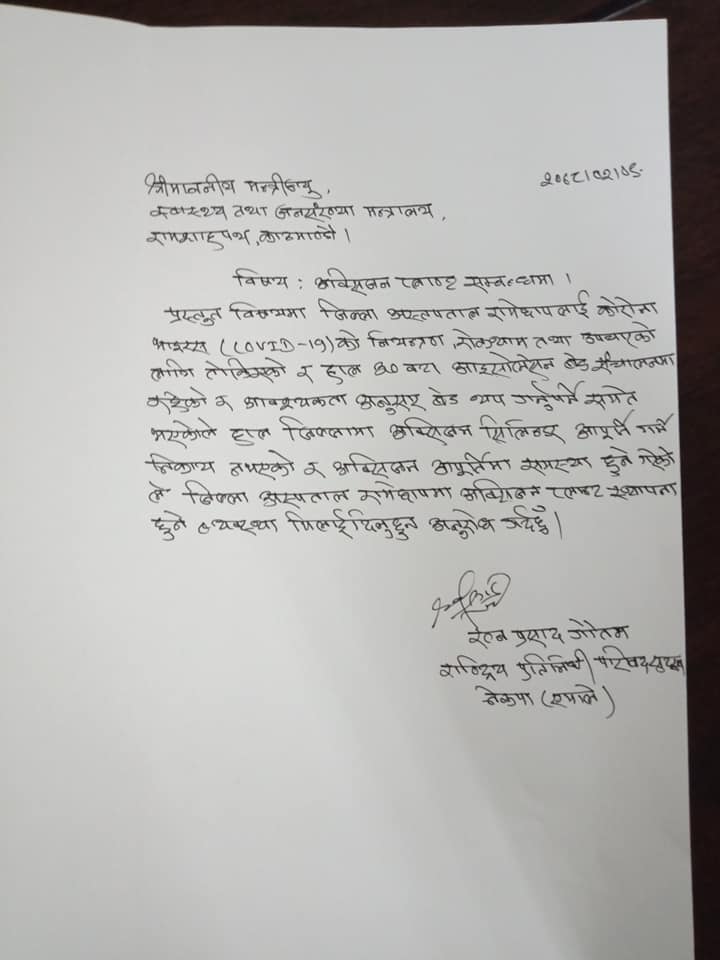 श्रीमाननीय मन्त्रीज्यु,
२०७८/०२/०८
स्वास्थ्य तथा जनसंख्या मन्त्रालय,
रामशाहपथ, काठमाण्डौ ।
विषय : अक्सिजन प्लाण्ट सम्बन्धमा ।
प्रस्तुत विषयमा जिल्ला अस्पताल रामेछापलाई कोरोना
भाइरस (COVID-19) को नियन्त्रण, रोकथाम तथा उपचारको
लागि तोकिएको र हाल ४० वटा आइसोलेसन बेड संचालनमा
रहेको र आवश्यकता अनुसार बेड थप गर्नुपर्ने समेत
भएकोले हाल जिल्लामा अक्सिजन सिलिन्डर आपूर्ति गर्ने
निकाय नभएको र अक्सिजन आपूर्तिमा समस्या हुने गरेको
ले जिल्ला अस्पताल रामेछापमा अक्सिजन प्लाण्ट स्थापना
हुने व्यवस्था मिलाईदिनुहुन अनुरोध गर्दछु ।
प्रसाद गौतम
राष्ट्रिय प्रतिनिधी परिषद सदस्य
नेकपा (एमाले)